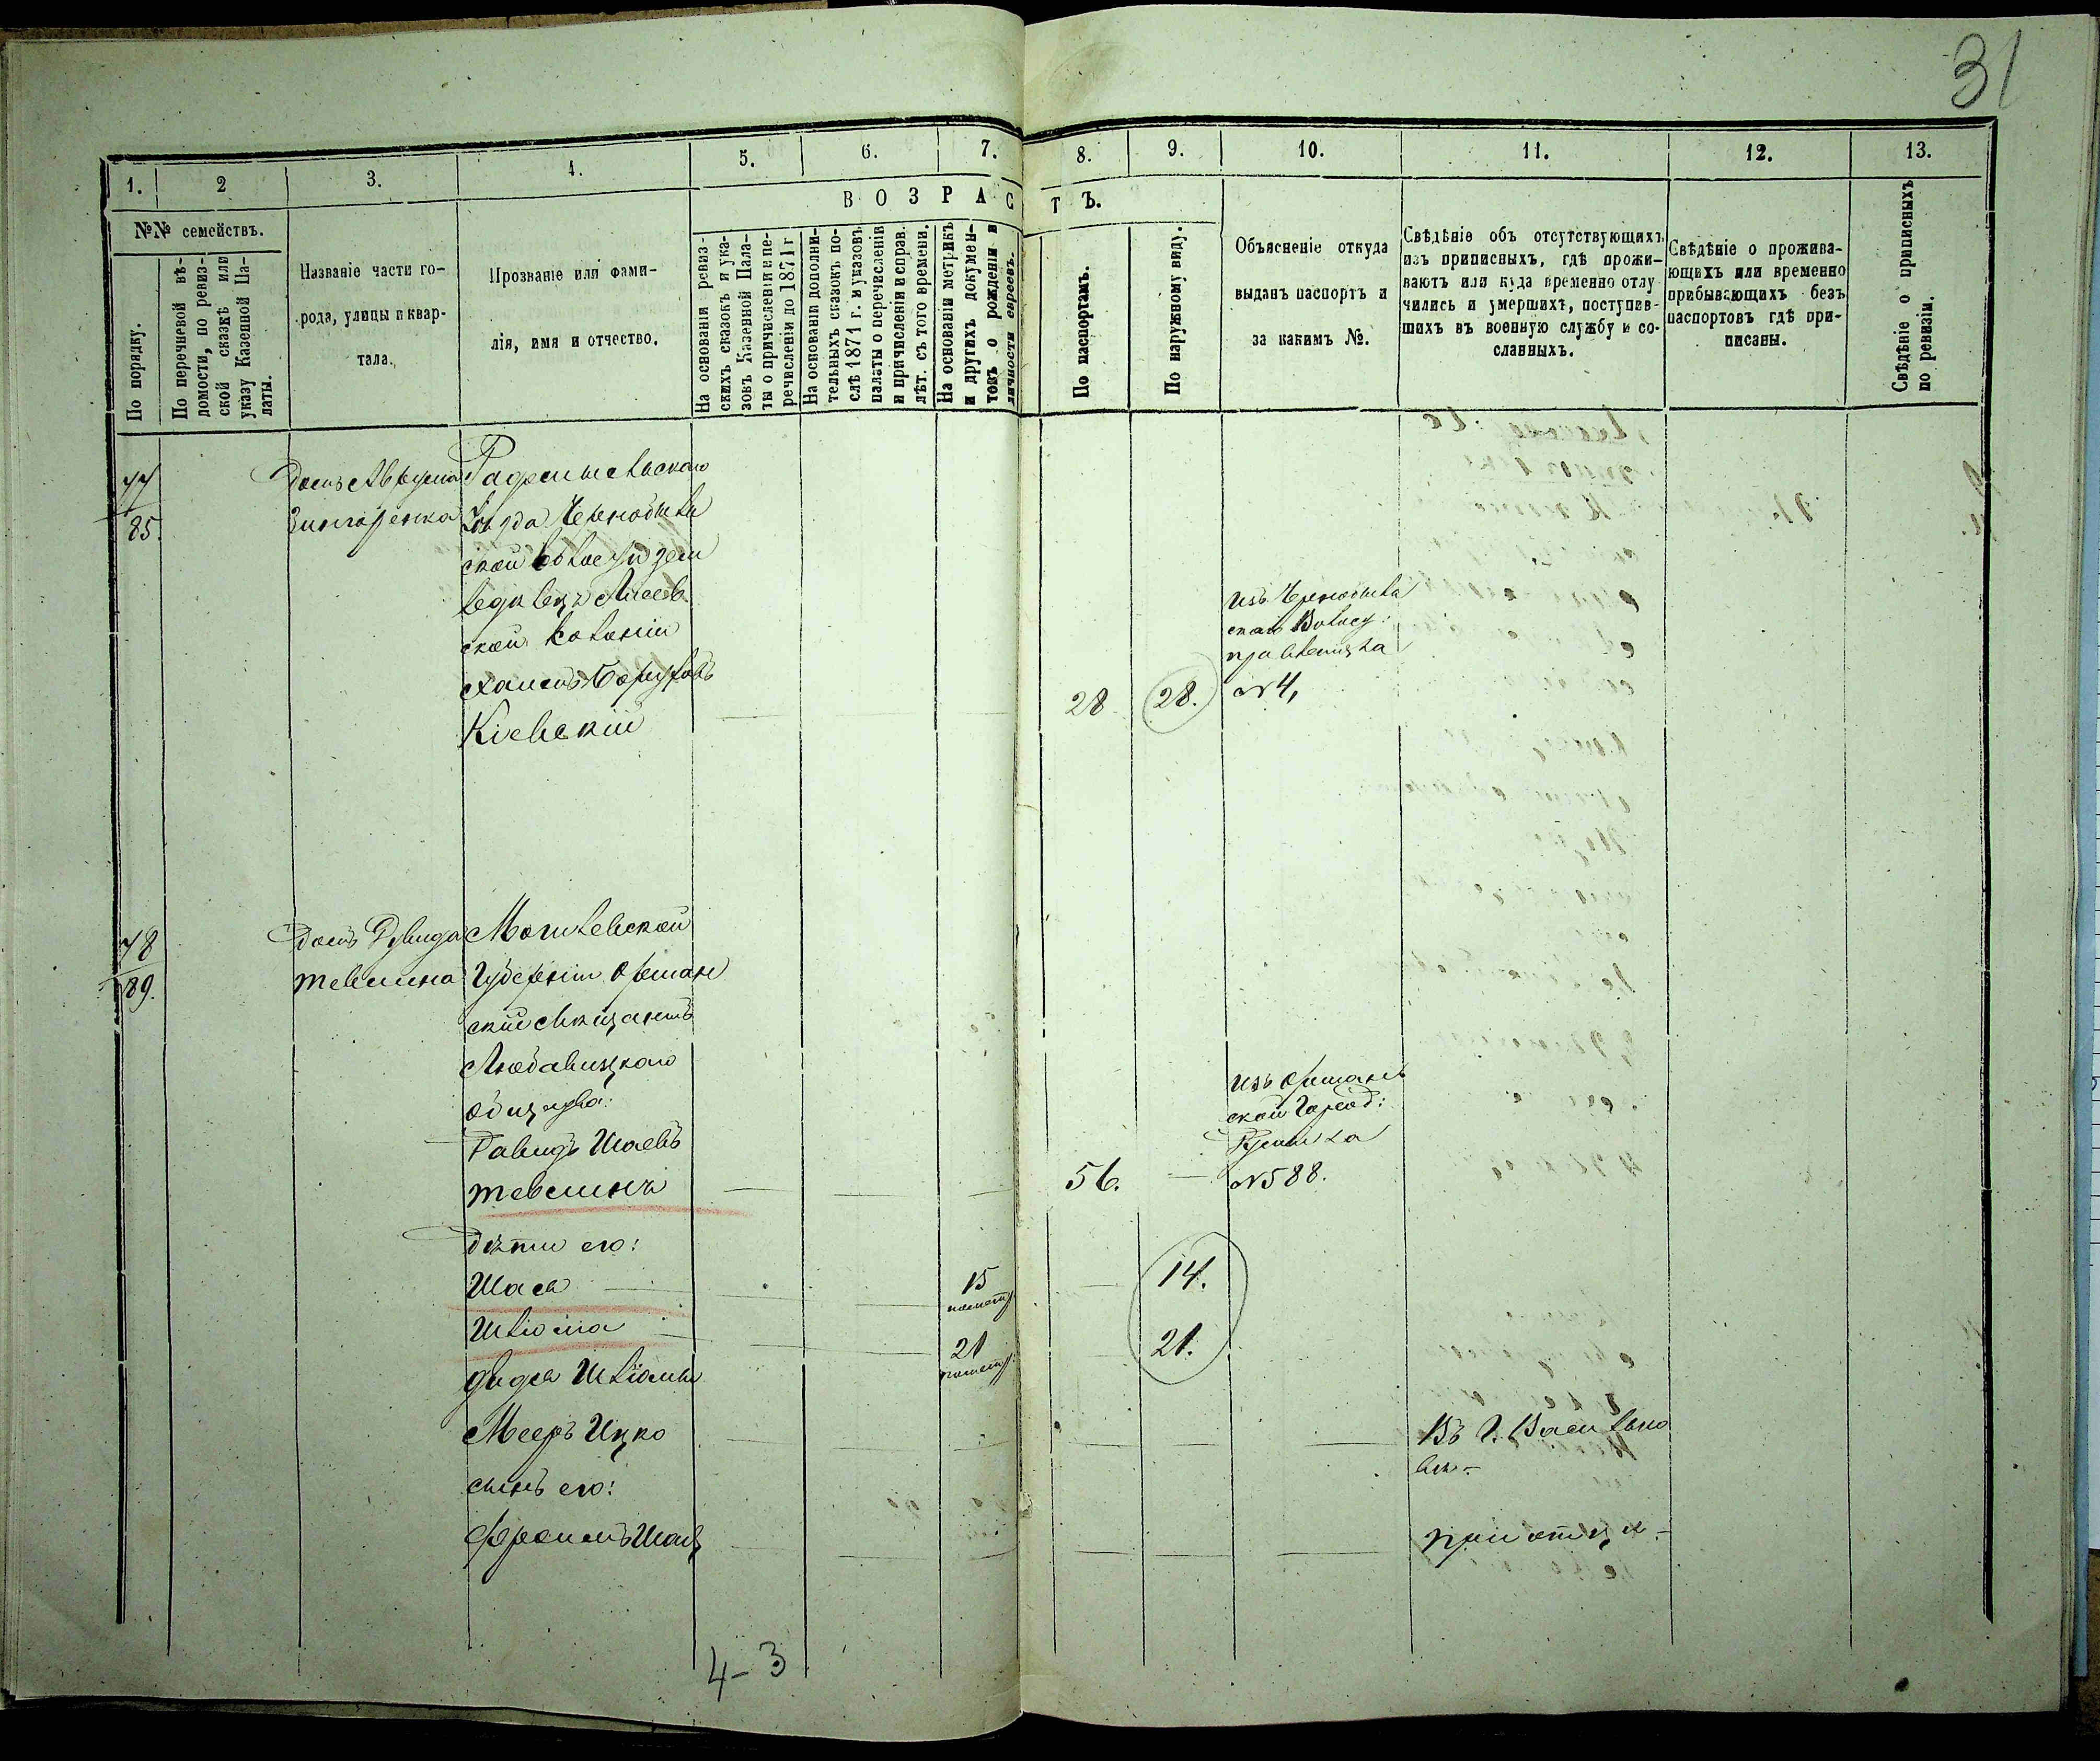 31
1. 2 3. 4. 5. 6. 7. 8. 9. 10. 11. 12. 13.
ВОЗРАСТЪ.
№№ семействъ.
По порядку.
По перечневой вѣ-
домости, по ревиз-
ской сказкѣ или
указу Казенной Па-
латы.
Названіе части го-
рода, улицы и квар-
тала.
Прозваніе или фами-
лія, имя и отчество.
На основаніи ревиз-
скихъ сказокъ и ука-
зовъ Казенной Пала-
ты о причисленіи и пе-
речисленіи до 1871 г
На основаніи дополни-
тельныхъ сказокъ по-
слѣ 1871 г. и указовъ
палаты о перечисленіи
и причисленіи и справ.
лѣт. съ того времени.
На основаніи метрикъ
и другихъ докумен-
товъ о рожденіи и
личности евреевъ.
По паспортамъ.
По наружному виду.
Объясненіе откуда
выданъ паспортъ и
за какимъ №.
Свѣдѣніе объ отсутствующихъ
изъ приписныхъ, гдѣ прожи-
ваютъ или куда временно отлу
чились и умершихъ, поступив-
шихъ въ военную службу и со-
сланныхъ.
Свѣдѣніе о прожива-
ющихъ или временно
прибывающихъ безъ
паспортовъ гдѣ при-
писаны.
Свѣдѣніе о приписныхъ
по ревизіи.
77
85.
Домъ
Радомысльскаго
уѣзда Чернобыль
ской волости зем
ледѣлецъ
ской колоніи
Хаимъ Боруховъ
Кіевскій
28 28.
Изъ Чернобыль
скаго Волос:
правленія за
№ 4,
78
89.
Домъ Давида
Тевелина
Могилевской
Губерніи Оршан
скій мѣщанинъ
Любавицкаго
общества:
Давидъ Шаевъ
Тевелинъ
56.
Изъ Оршанс
кой Город:
Думы за
№ 588.
Дѣти его:
Шая 15 14.
Шліома 21 21.
дядя Шліомы
Мееръ Ицко
Въ г. Василько
вѣ.-
сынъ его:
Фроимъ
при отцѣ.-
4-3